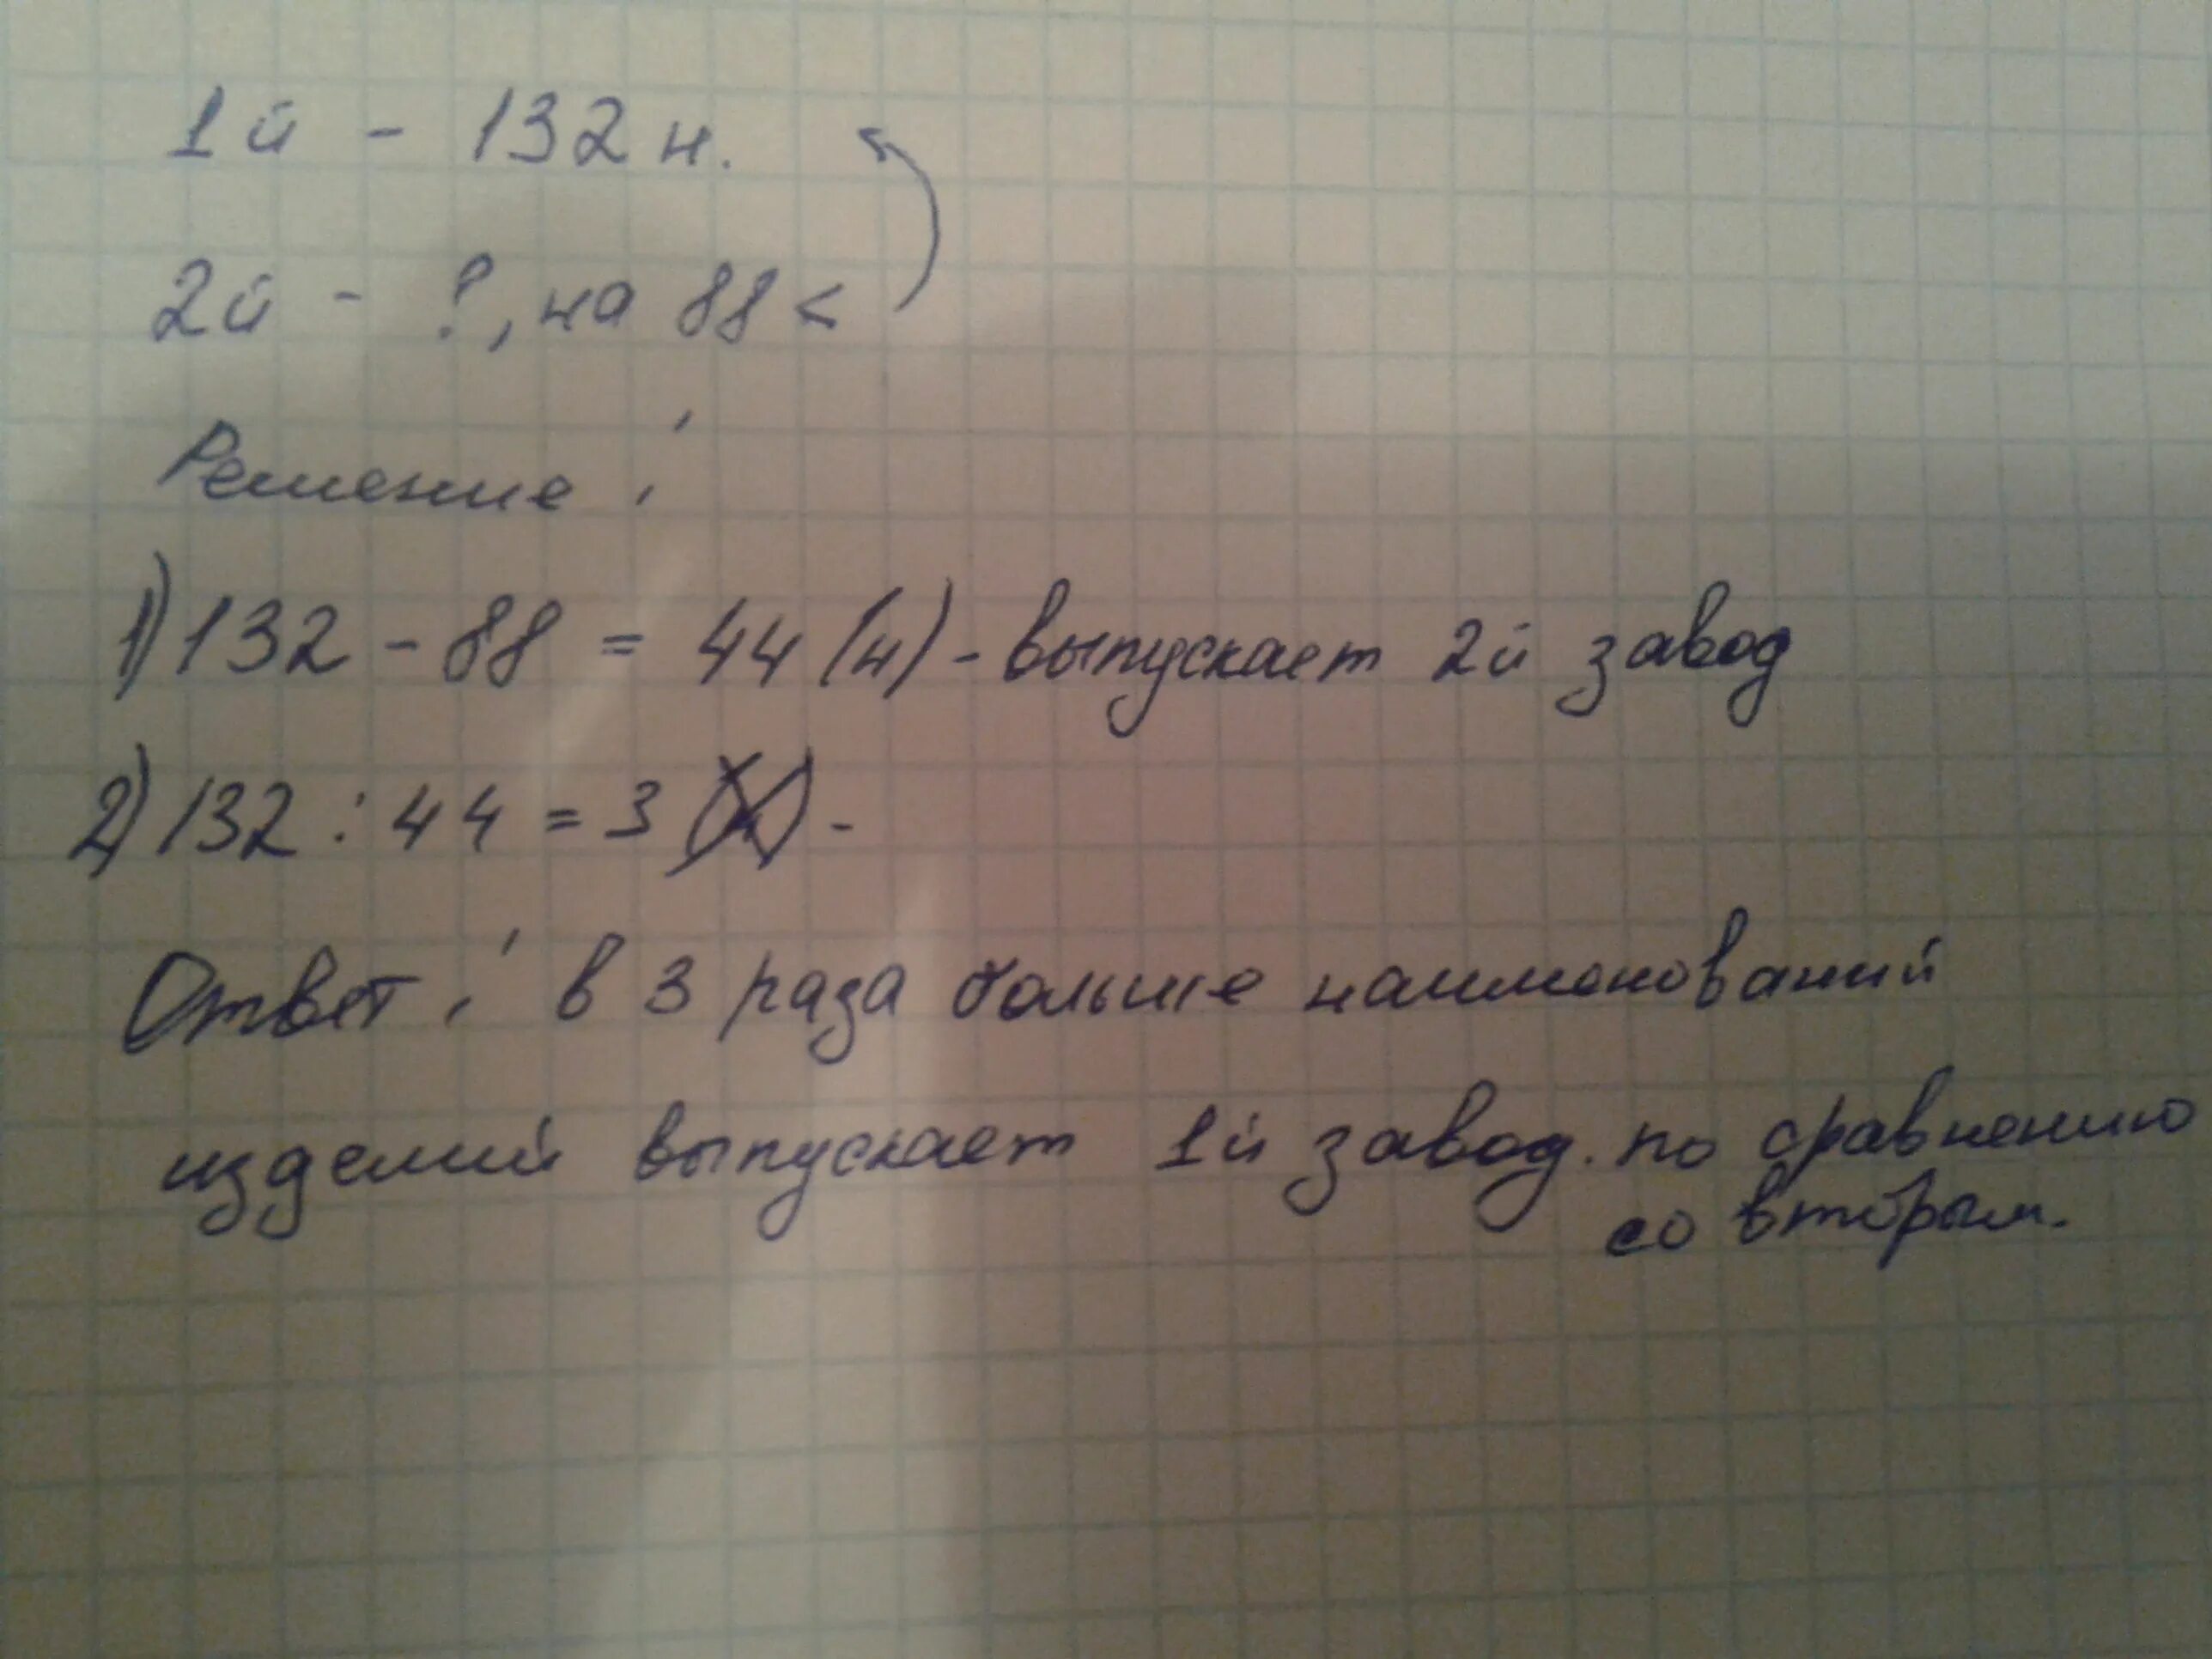 1й - 132 н.
2й - ?, на 88 <
Решение:
1) 132 - 88 = 44 (н) - выпускает 2й завод
2) 132 : 44 = 3 -
Ответ: в 3 раза больше наименований
изделий выпускает 1й завод. по сравнению
со вторым.